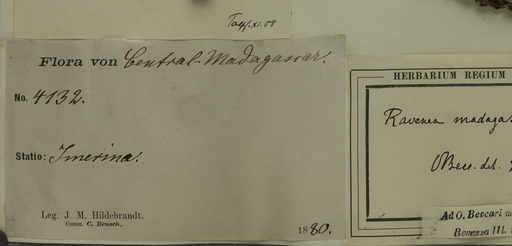 Flora von Central-Madagascar.
No. 4132.
Statio: Imerina.
Leg. J. M. Hildebrandt.
Comm. C. Rensch.
1880.
HERBARIUM REGIUM
Ravenea madaga
OBecc. det.
Ad O. Beccari
Recensa III.